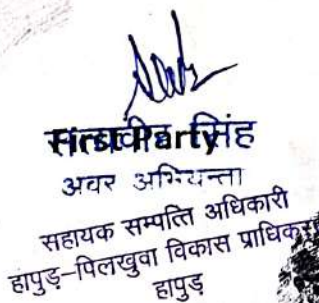 First Party
सिंह
अवर अभियन्ता
सहायक सम्पत्ति अधिकारी
हापुड़-पिलखुवा विकास प्राधिकरण
हापुड़